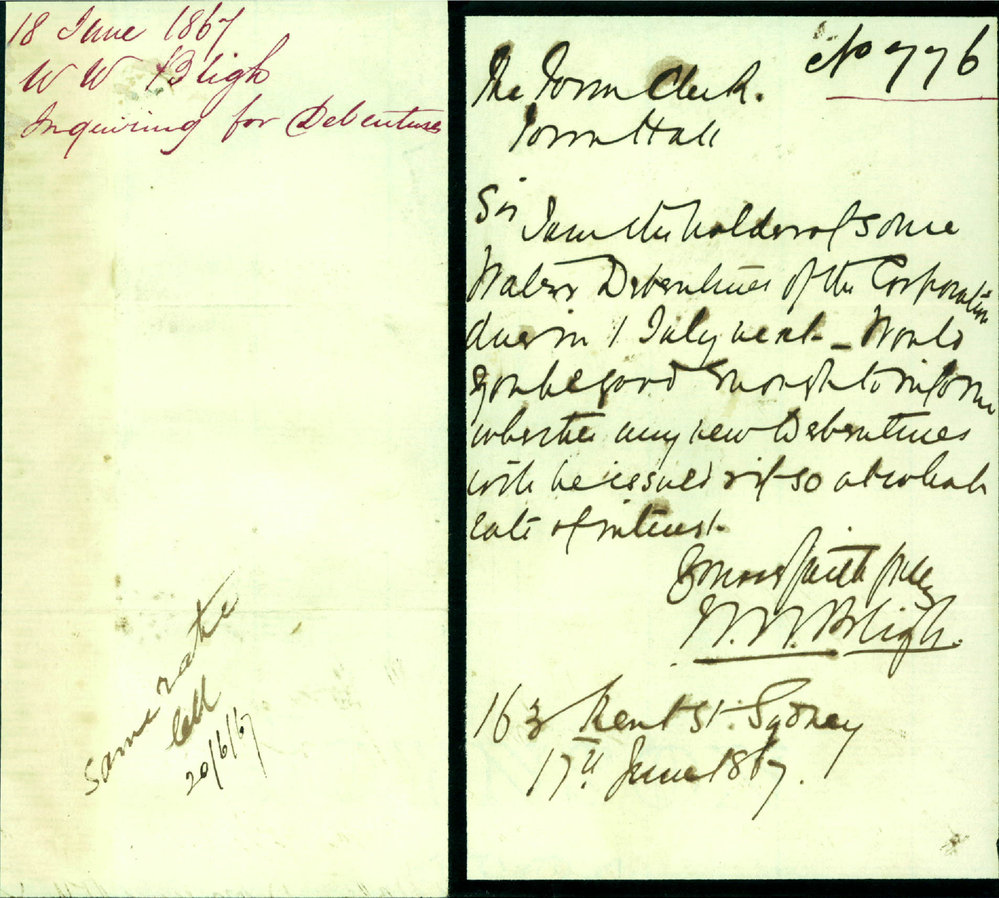 18 June 1867
W W Bligh
Inquiring for Debentures
Same rate
20/6/67
No 776
The Town Clerk.
Town Hall
Sir
I am the holder of some
Water Debentures of the Corporation
due on 1 July next – Would
you be good enough to inform
whether any new Debentures
will be issued & if so at what
rate of interest.
Yours faithfully
W. W. Bligh.
163 Kent St. Sydney
17th June 1867.